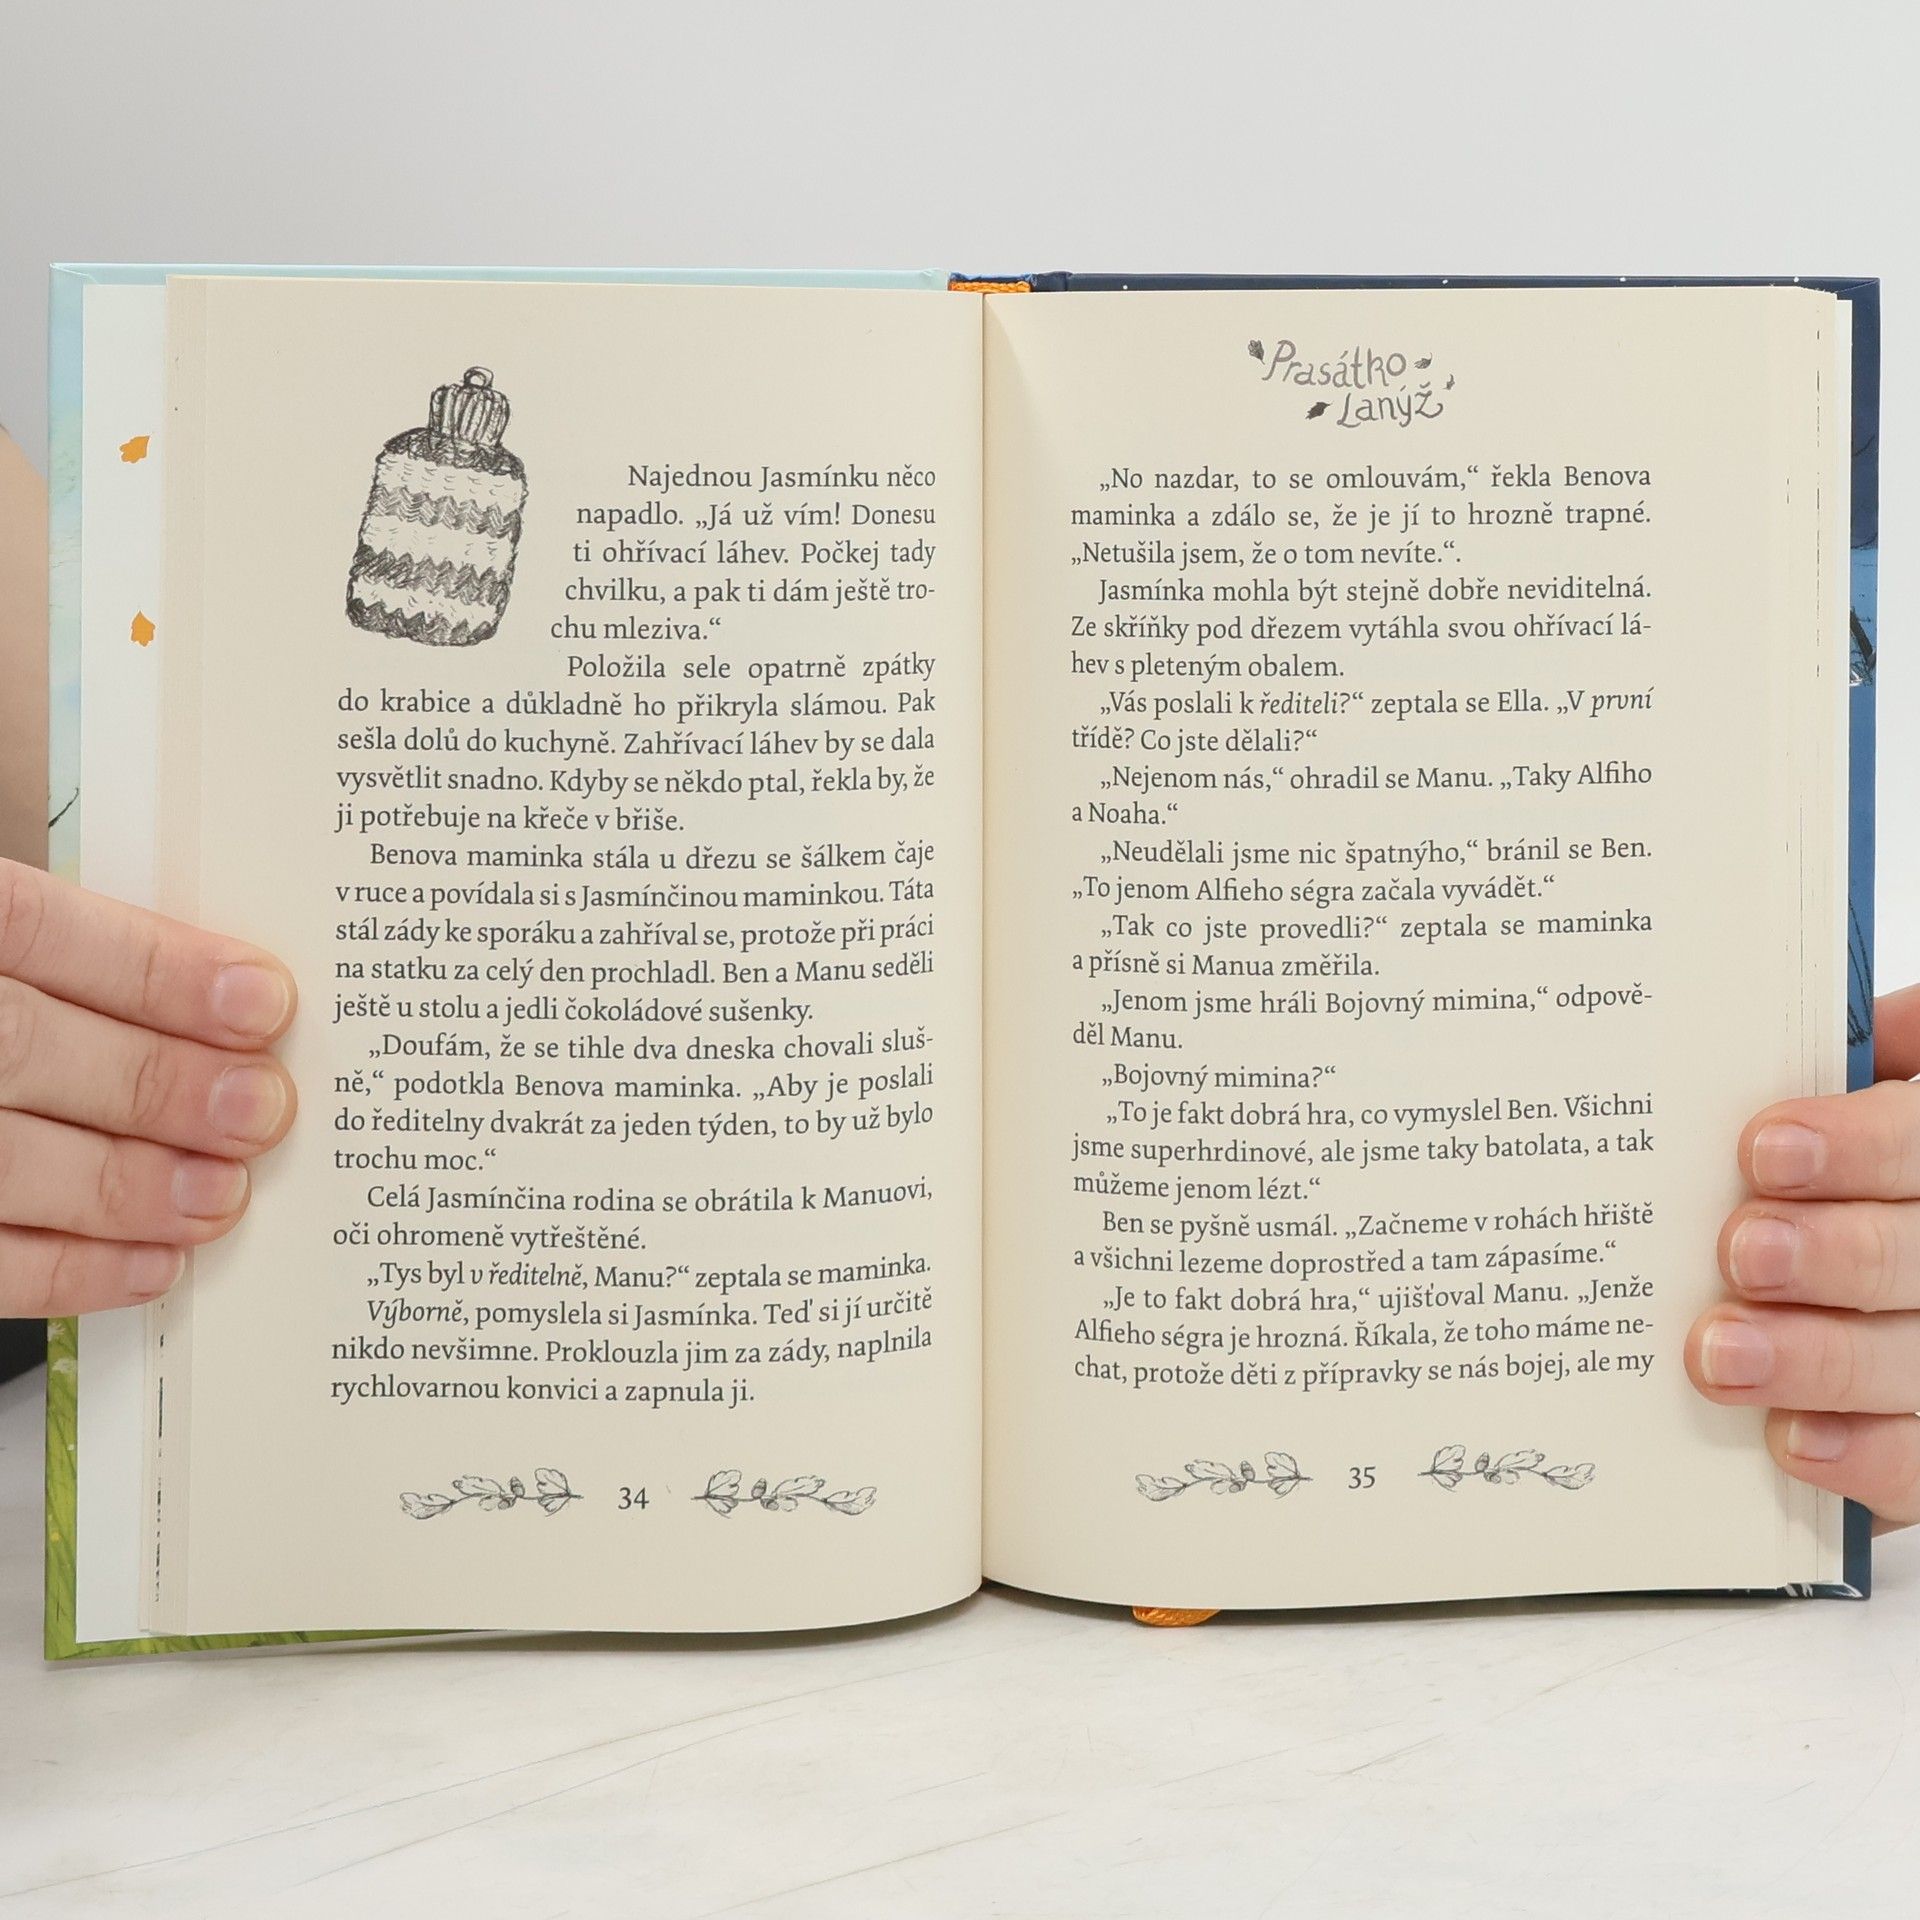 Najednou Jasmínku něco
napadlo. „Já už vím! Donesu
ti ohřívací láhev. Počkej tady
chvilku, a pak ti dám ještě tro-
chu mleziva.“
Položila sele opatrně zpátky
do krabice a důkladně ho přikryla slámou. Pak
sešla dolů do kuchyně. Zahřívací láhev by se dala
vysvětlit snadno. Kdyby se někdo ptal, řekla by, že
ji potřebuje na křeče v břiše.
Benova maminka stála u dřezu se šálkem čaje
v ruce a povídala si s Jasmínčinou maminkou. Táta
stál zády ke sporáku a zahříval se, protože při práci
na statku za celý den prochladl. Ben a Manu seděli
ještě u stolu a jedli čokoládové sušenky.
„Doufám, že se tihle dva dneska chovali sluš-
ně,“ podotkla Benova maminka. „Aby je poslali
do ředitelny dvakrát za jeden týden, to by už bylo
trochu moc.“
Celá Jasmínčina rodina se obrátila k Manuovi,
oči ohromeně vytřeštěné.
„Tys byl v ředitelně, Manu?“ zeptala se maminka.
Výborně, pomyslela si Jasmínka. Teď si jí určitě
nikdo nevšimne. Proklouzla jim za zády, naplnila
rychlovarnou konvici a zapnula ji.
34
Prasátko
Lanýž
„No nazdar, to se omlouvám,“ řekla Benova
maminka a zdálo se, že je jí to hrozně trapné.
„Netušila jsem, že o tom nevíte.“.
Jasmínka mohla být stejně dobře neviditelná.
Ze skříňky pod dřezem vytáhla svou ohřívací lá-
hev s pleteným obalem.
„Vás poslali k řediteli?“ zeptala se Ella. „V první
třídě? Co jste dělali?“
„Nejenom nás,“ ohradil se Manu. „Taky Alfiho
a Noaha.“
„Neudělali jsme nic špatnýho,“ bránil se Ben.
„To jenom Alfieho ségra začala vyvádět.“
„Tak co jste provedli?“ zeptala se maminka
a přísně si Manua změřila.
„Jenom jsme hráli Bojovný mimina,“ odpově-
děl Manu.
„Bojovný mimina?“
„To je fakt dobrá hra, co vymyslel Ben. Všichni
jsme superhrdinové, ale jsme taky batolata, a tak
můžeme jenom lézt.“
Ben se pyšně usmál. „Začneme v rohách hřiště
a všichni lezeme doprostřed a tam zápasíme.“
„Je to fakt dobrá hra,“ ujišťoval Manu. „Jenže
Alfieho ségra je hrozná. Říkala, že toho máme ne-
chat, protože děti z přípravky se nás bojej, ale my
35